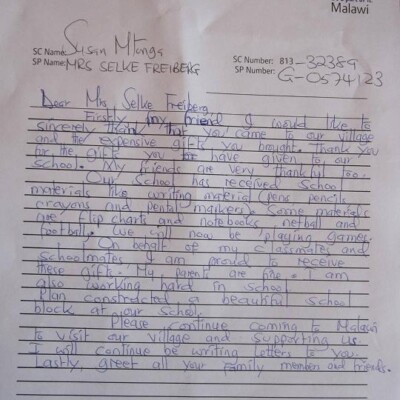 Malawi
SC Name: Susan Mtonga
SC Number: 813-32389
SP Name: MRS SELKE FREIBERG
SP Number: G-0574123
Dear Mrs Selke Freiberg
Firstly my friend I would like to
sincerely thank that you came to our village
and the expensive gifts you bought. Thank you
for the gifts you for have given to our
school. My friends are very thankful too.
Our School has received school
materials like writing material (pens pencils
crayons and pental markers). Some materials
are flip charts and notebooks, netball and
football. We will now be playing games.
On behalf of my classmates and
schoolmates I am proud to receive
these gifts. My parents are fine. I am
also working hard in school
Plan constructed a beautiful school
block at our school.
Please continue coming to Malawi
to visit our village and supporting us.
I will continue be writing letters to you.
Lastly, greet all your family members and friends.